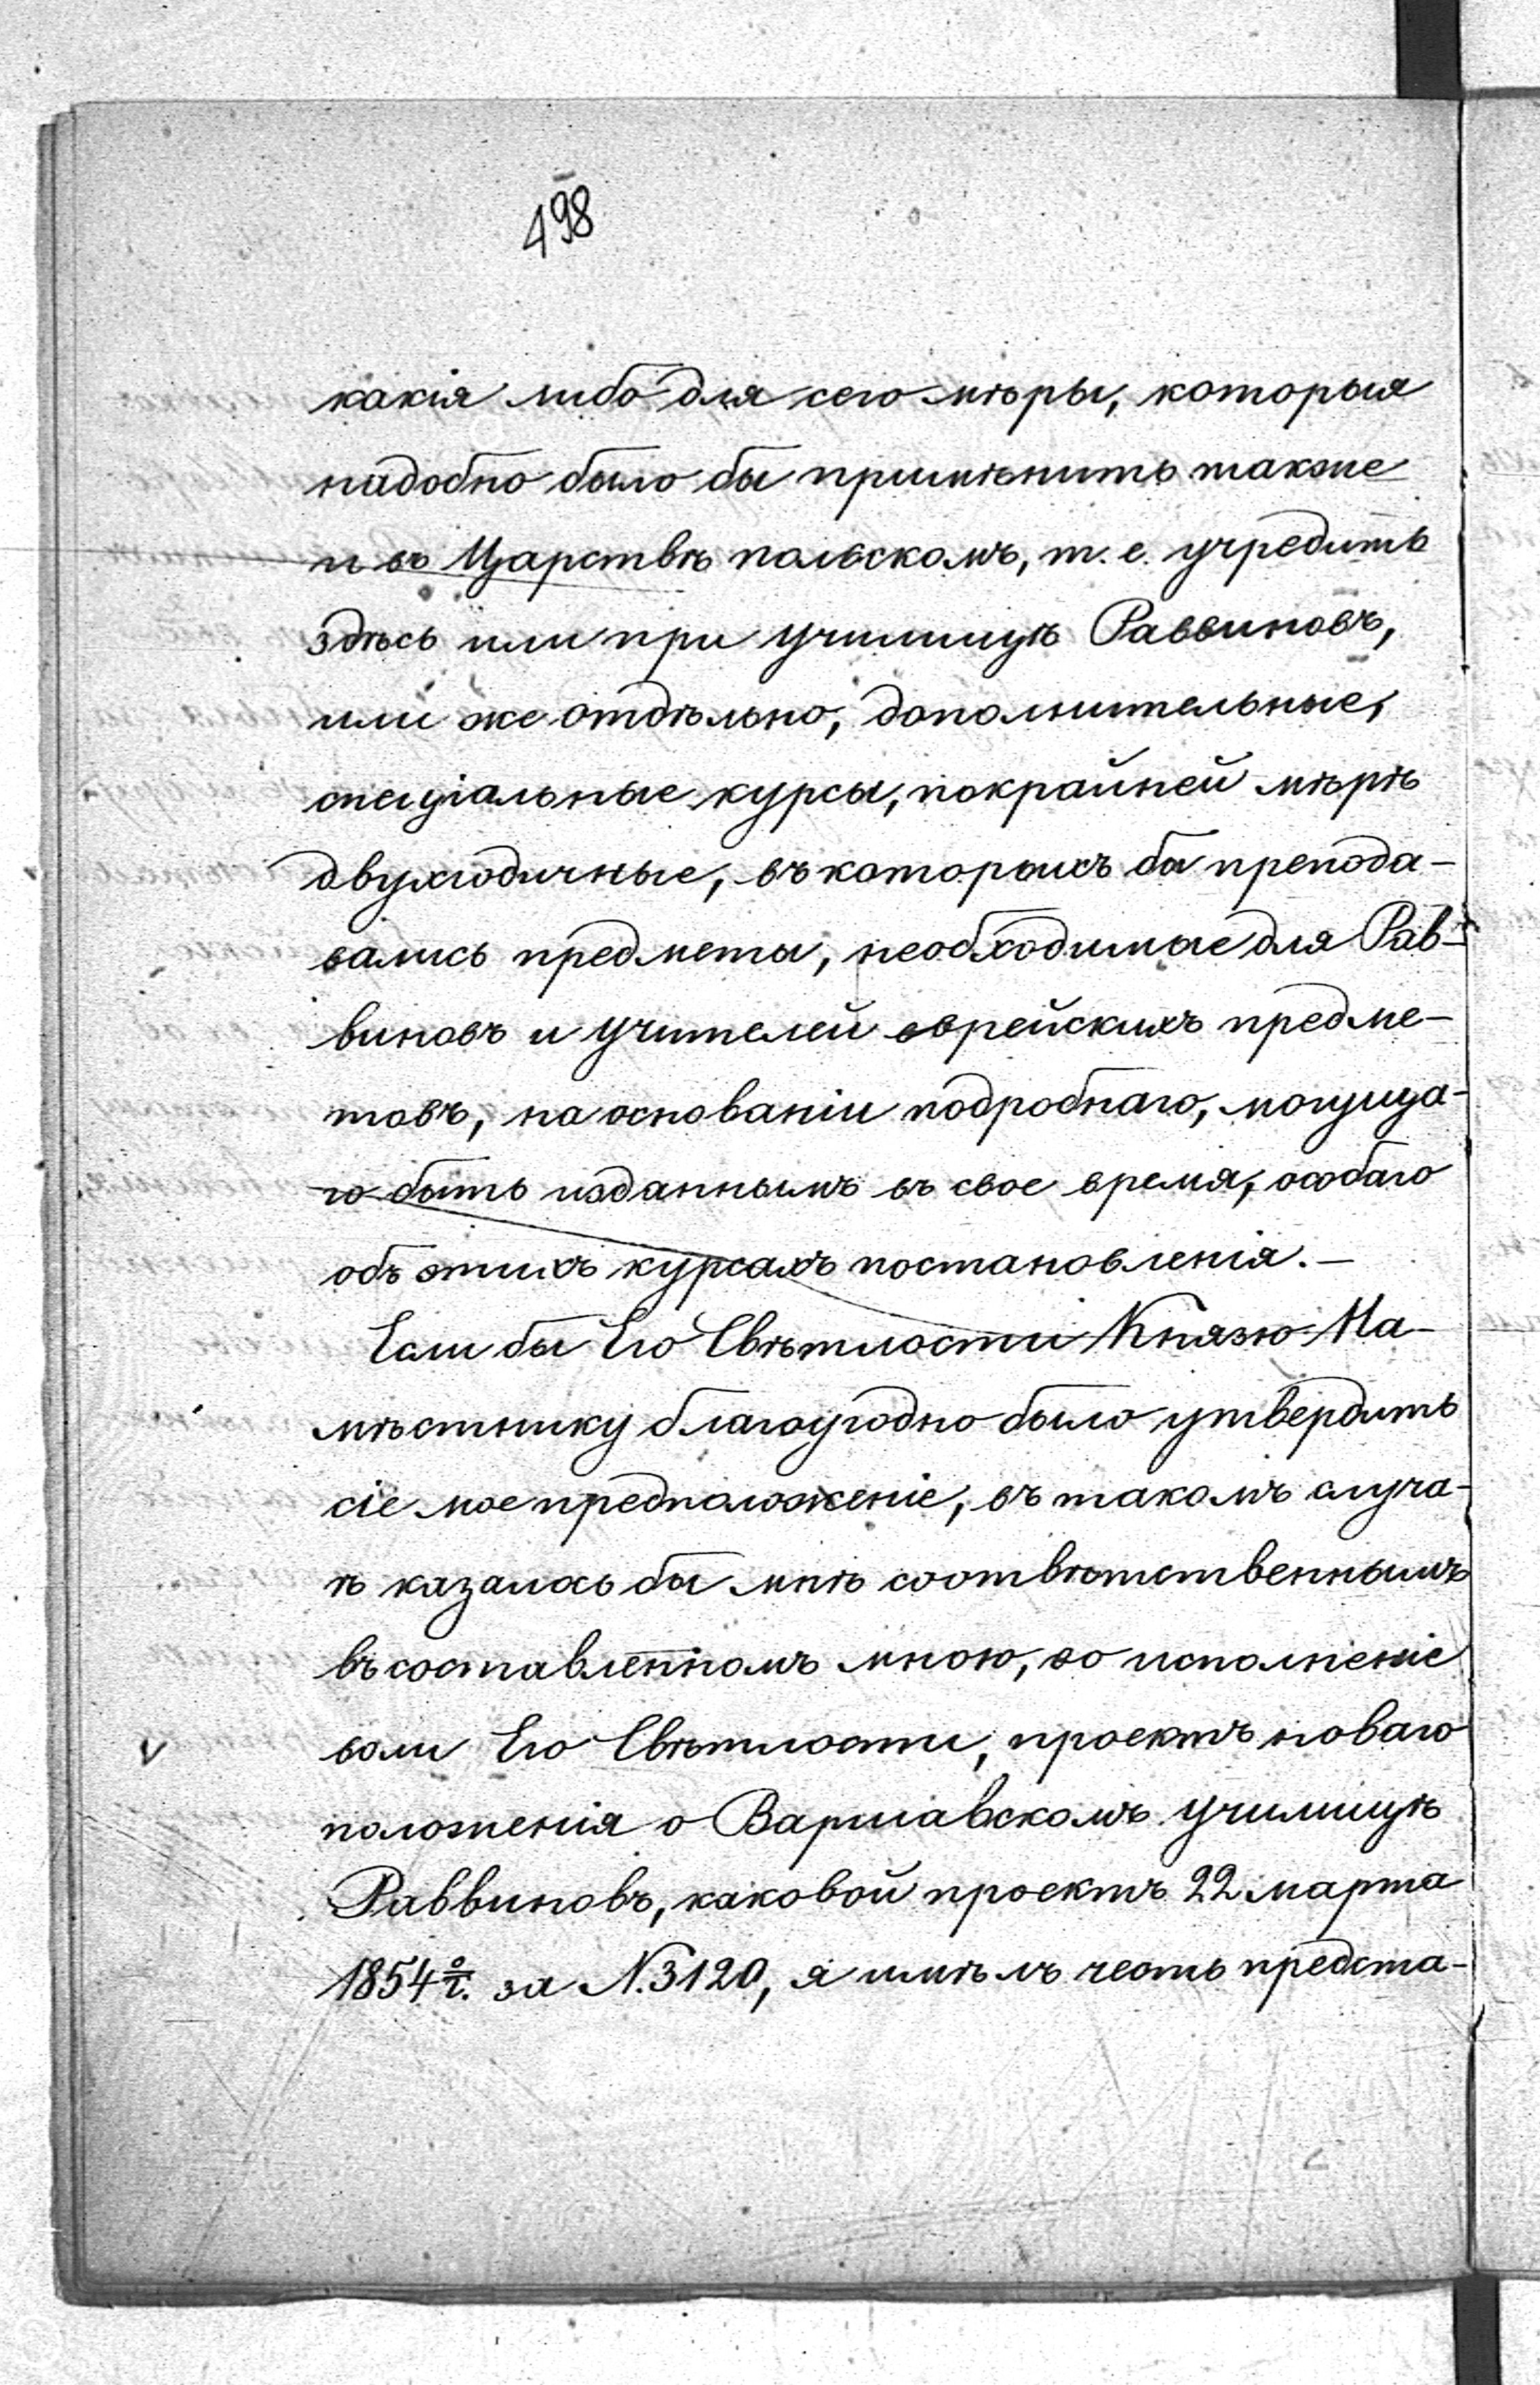 498
какія либо для сего мѣры, которыя
надобно было бы примѣнить также
и въ Царствѣ польскомъ, т. е. учредить
здѣсь или при училищѣ Раввиновъ,
или же отдѣльно, дополнительные,
спеціальные курсы, покрайней мѣрѣ
двухгодичные, въ которыхъ бы препода-
вались предметы, необходимые для Рав-
виновъ и учителей еврейскихъ предме-
товъ, на основаніи подробнаго, могуща-
го быть изданнымъ въ свое время, особаго
объ этихъ курсахъ постановленія.-
Если бы Его Свѣтлости Князю На-
мѣстнику благоугодно было утвердить
сіе мое предположеніе, въ такомъ случа-
ѣ казалось бы мнѣ соотвѣтственнымъ
въ составленномъ мною, во исполненіе
воли Его Свѣтлости, проектѣ новаго
положенія о Варшавскомъ училищѣ
Раввиновъ, каковой проектъ 22 марта
1854 г. за N. 3120, я имѣлъ честь предста-